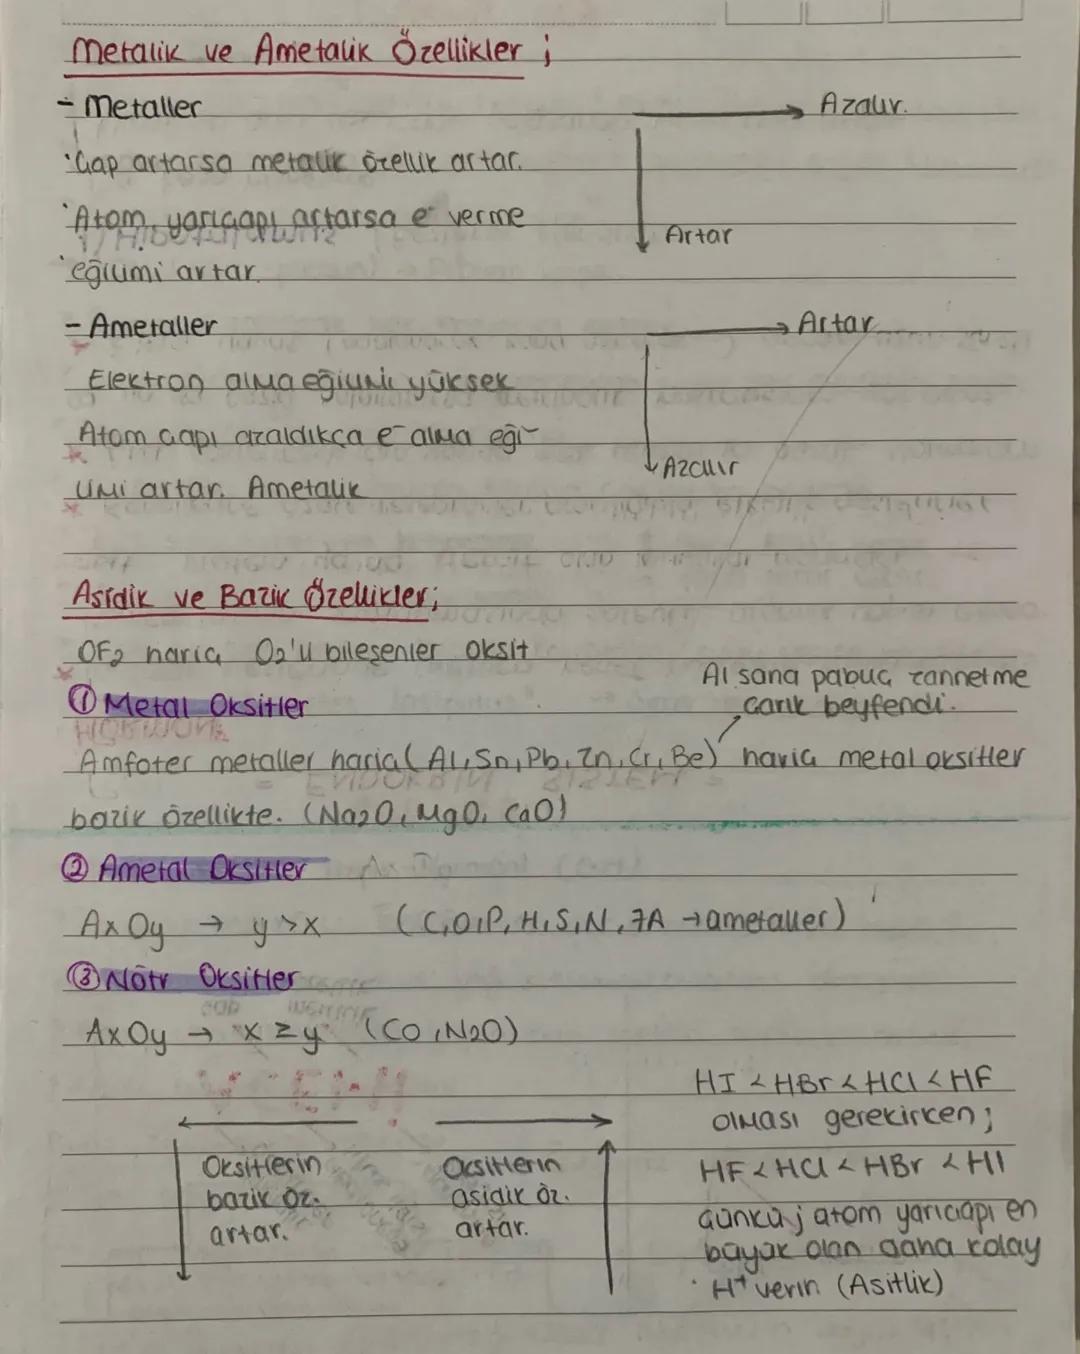 Metalik ve Ametalik Özellikler ;
- Metaller
Azalır.
Çap artarsa metalik özellik artar.
Atom yarıçapı artarsa e⁻ verme
Artar
eğilimi artar.
- Ametaller
Artar
Elektron alma eğilimi yüksek
Atom çapı azaldıkça e⁻ alma eği-
Azalır
limi artar. Ametalik
Asidik ve Bazik Özellikler;
OF₂ hariç O₂'li bileşenler oksit
Al sana pabuç zannetme
① Metal Oksitler
çarık beyfendi.
Amfoter metaller hariç (Al, Sn, Pb, Zn, Cr, Be) hariç metal oksitler
bazik özellikte. (Na₂O, MgO, CaO)
② Ametal Oksitler
AxOy → y>x (C,O,P, H,S,N,7A → ametaller)
③ Nötr Oksitler
AxOy → x ≥ y (CO, N₂O)
HI < HBr < HCl < HF
olması gerekirken;
Oksitlerin
bazik öz.
artar.
Oksitlerin
asidik öz.
artar.
HF < HCl < HBr < HI
Çünkü; atom yarıçapı en
büyük olan daha kolay
H⁺ verir. (Asitlik)